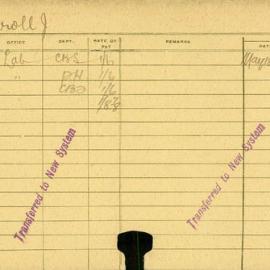 roll J
OFFICE DEPT. RATE OF PAY REMARKS DAT
Lab CBS 1/6 May
" P.H. 1/6
CBS 1/6
1/8
Transferred to New System
Transferred to New System